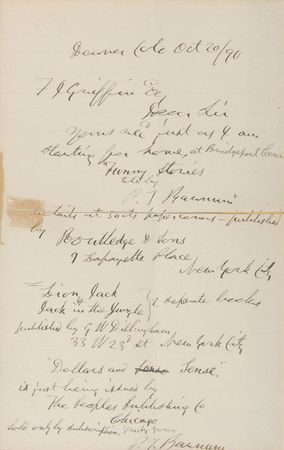 Denver Colo Oct 20/90
F J Griffin Esq
Dear Sir
Yours rec'd just as I am
starting for home, at Bridgeport Conn
"Funny Stories
told by
P. T. Barnum"
retails at 50cts paper covers — published
by Routledge & Sons
9 Lafayette Place
New York City
"Lion Jack
Jack in the Jungle } 2 separate books
published by G W Dillingham
33 W 23d st New York City
"Dollars and Sense"
is just being issued by
The Peoples Publishing Co
Chicago
Sold only by subscription. Truly Yours
P. T. Barnum